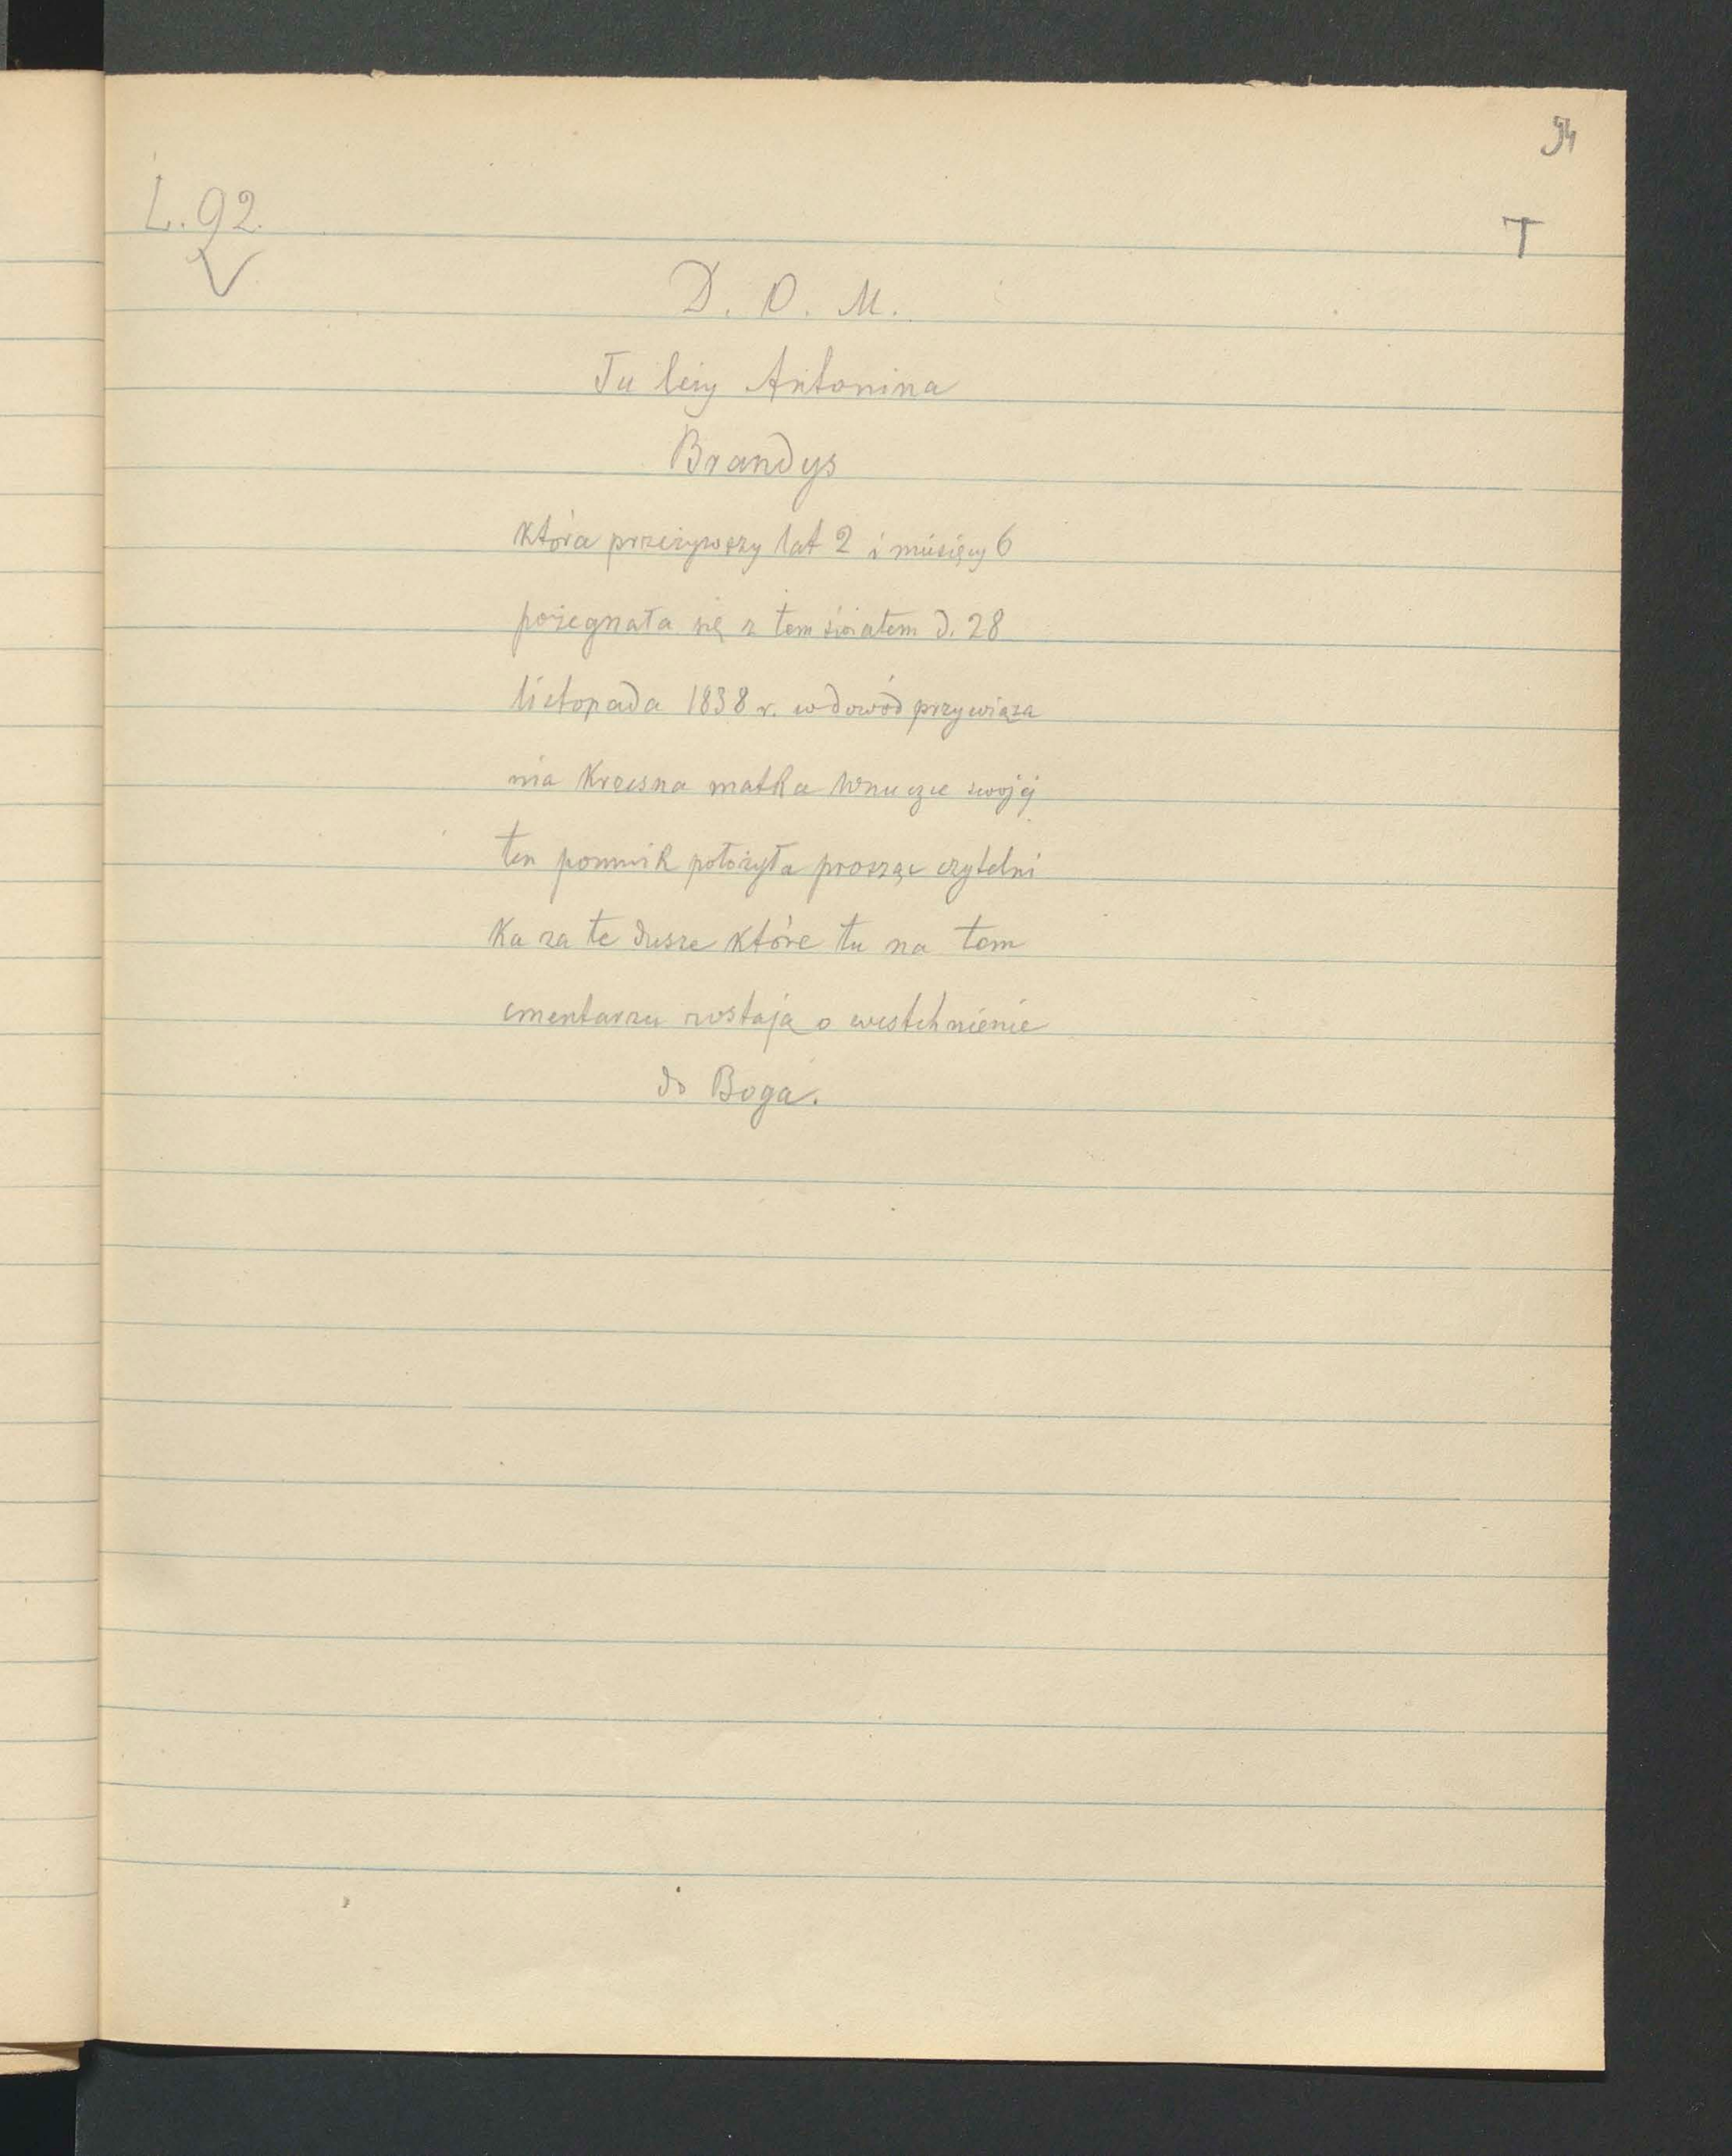 94
L. 92.
T
D. O. M.
Tu leży Antonina
Brandys
która przeżywszy lat 2 i miesięcy 6
pożegnała się z tem światem d. 28
listopada 1838 r. w dowód przywiąza
nia Krzesna matka Wnuczce swojéj
ten pomnik położyła prosząc czytelni
ka za te dusze które tu na tem
cmentarzu zostają o westchnienie
do Boga.